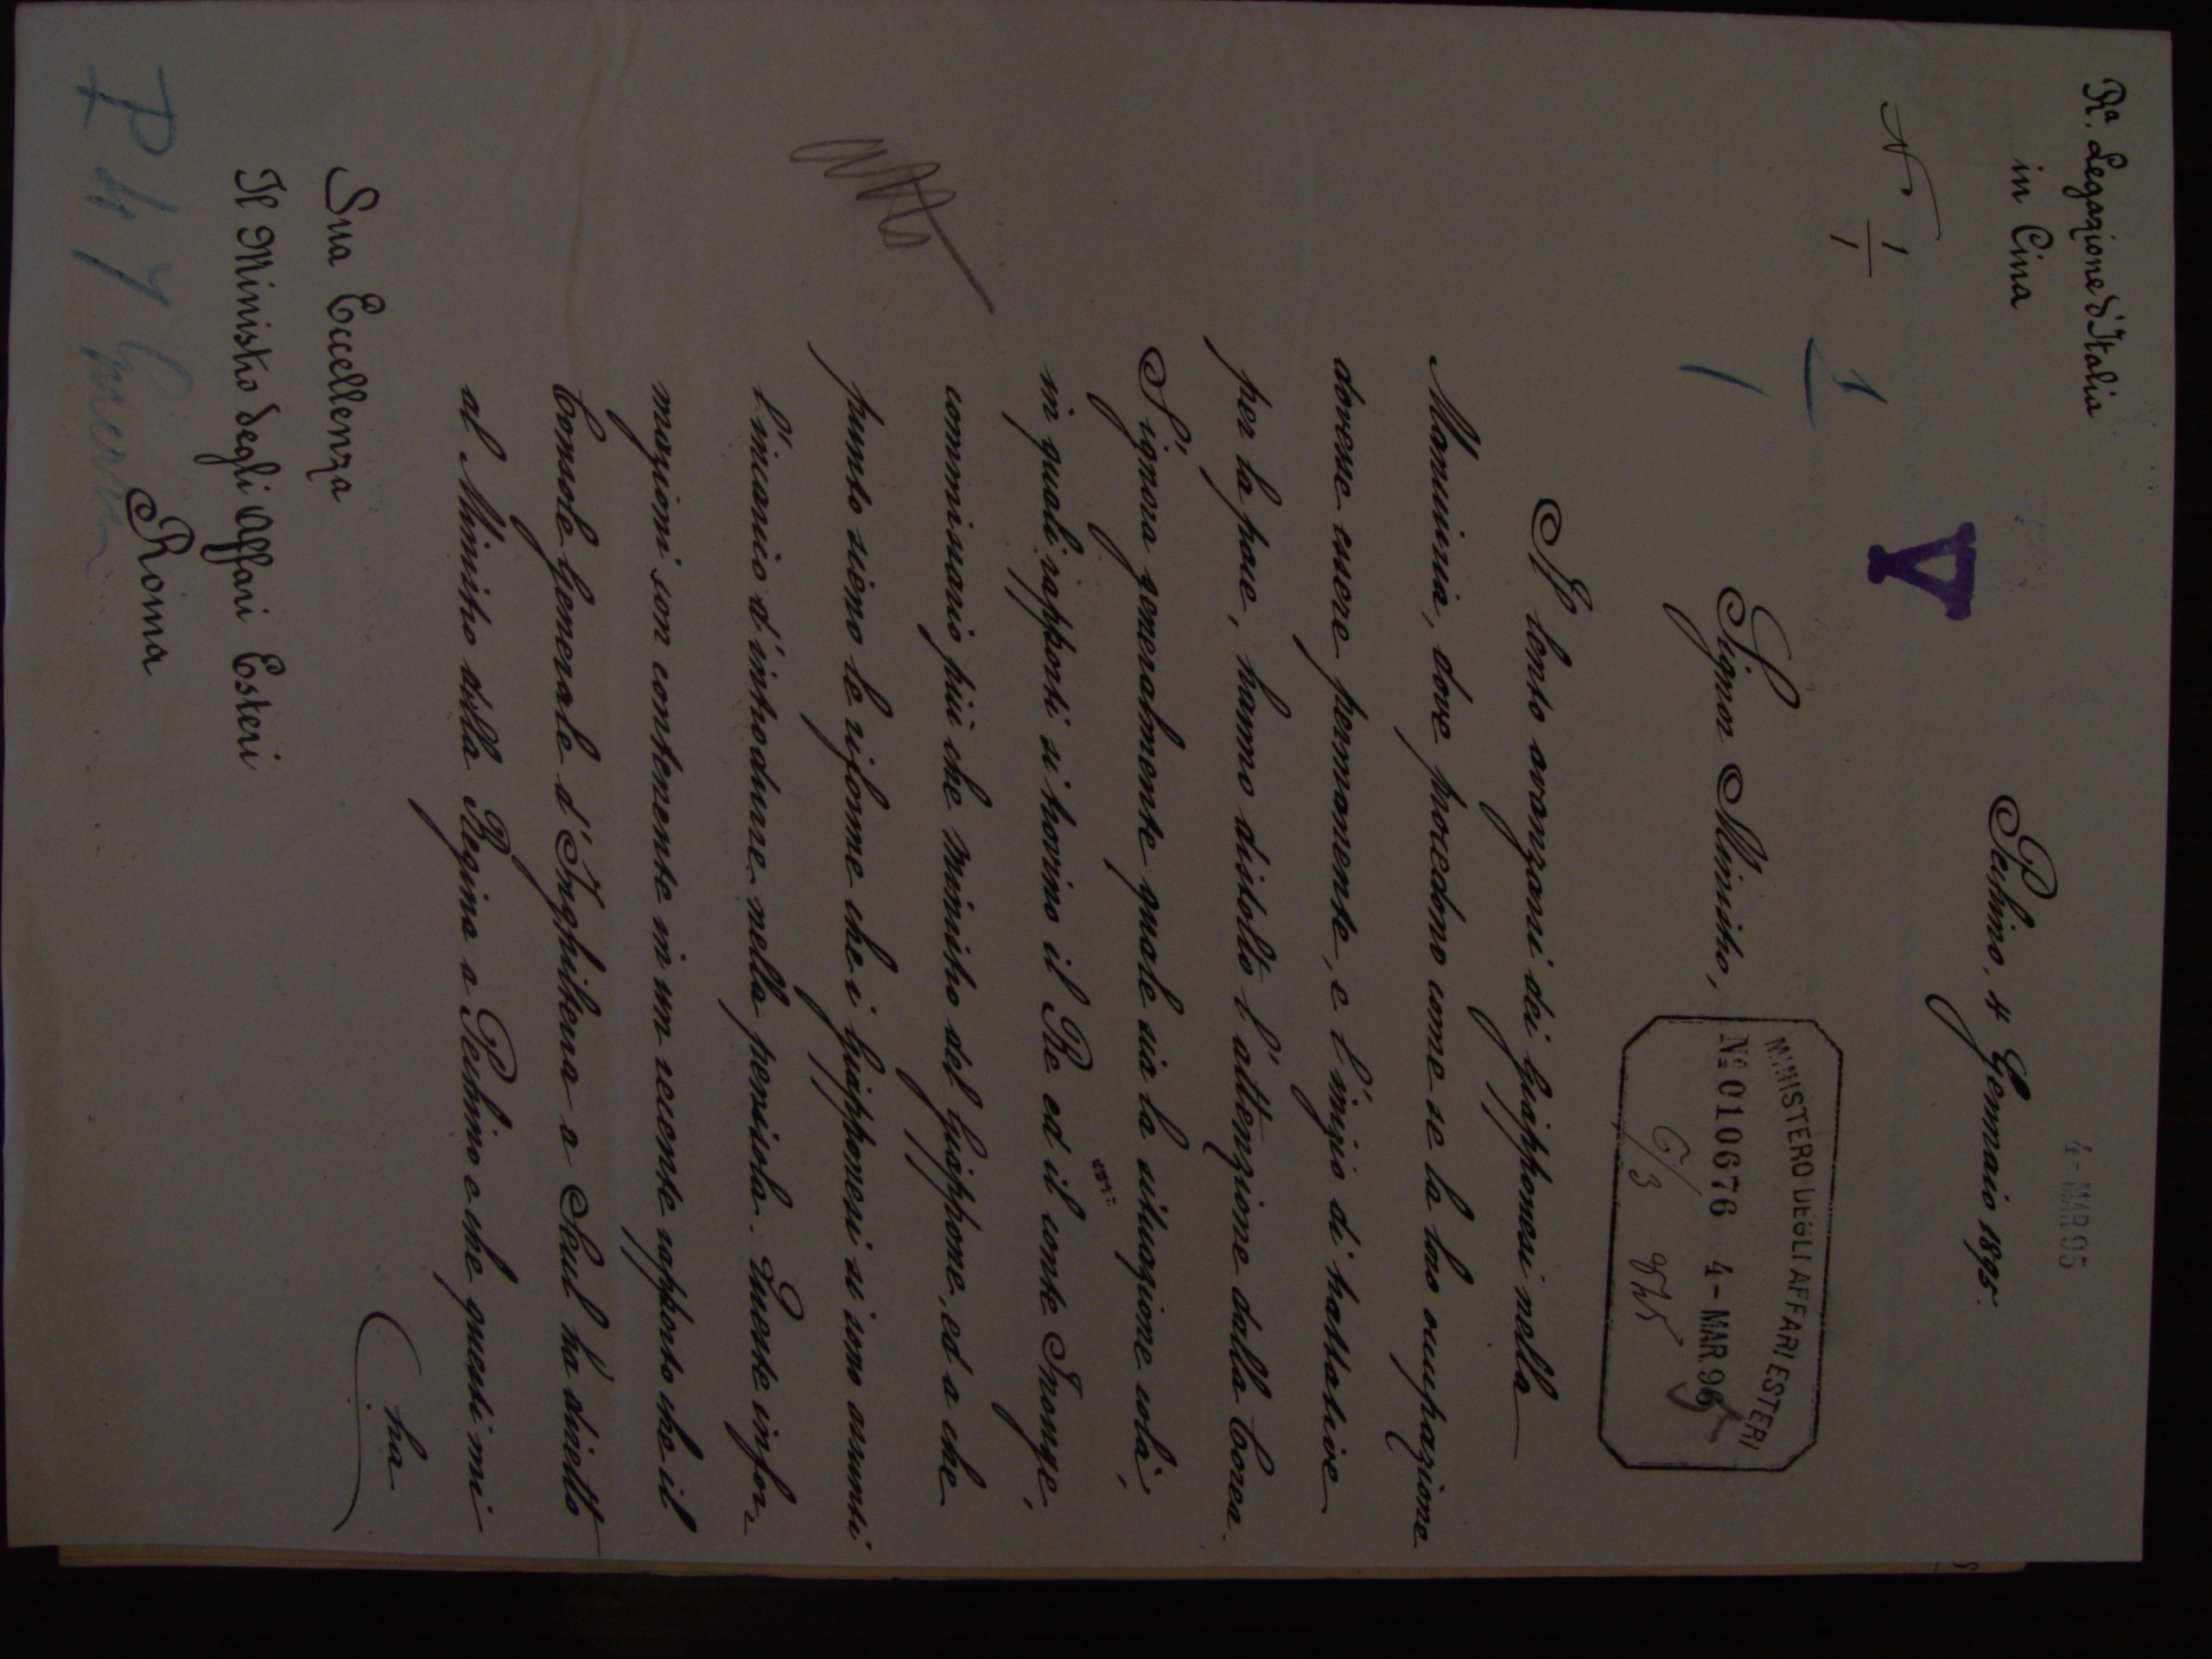 4 - MAR 95
Rª. Legazione d'Italia
in Cina
Pechino, 4 Gennaio 1895.
N 1/1
1
1
V
MINISTERO DEGLI AFFARI ESTERI
Nº 010676 4 - MAR 95
6/3
Signor Ministro,
Il lento avanzarsi dei Giapponesi nella
Manciuria, dove procedono come se la loro occupazione
dovesse essere permanente, e l'inizio di trattative
per la pace, hanno distolto l'attenzione dalla Corea.
S'ignora generalmente quale sia la situazione colà,
in quali rapporti si trovino il Re ed il conte Inouye,
commissario più che ministro del Giappone, ed a che
punto sieno le riforme che i Giapponesi si sono assunti
l'incarico d'introdurre nella penisola. Queste infor-
mazioni son contenute in un recente rapporto che il
Console Generale d'Inghilterra a Seul ha diretto
al Ministro della Regina a Pechino e che questi mi
ha
Sua Eccellenza
Il Ministro degli Affari Esteri
Roma
P 47